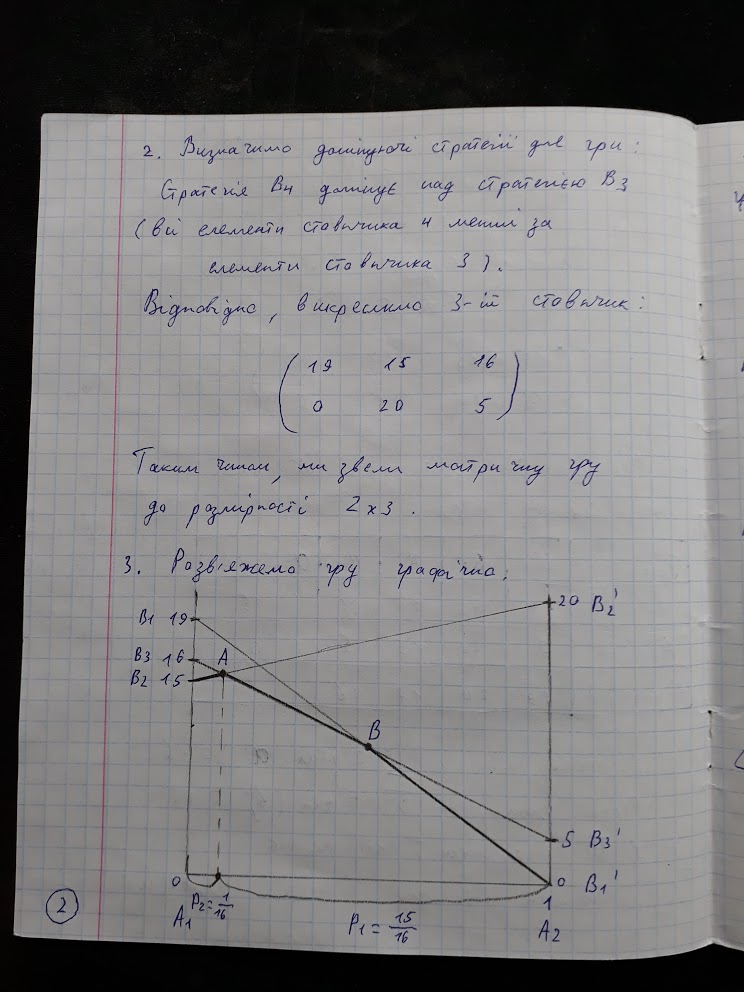 2. Визначимо домінуючі стратегії для гри:
Стратегія В4 домінує над стратегією В3
(всі елементи стовпчика 4 менші за
елементи стовпчика 3).
Відповідно, викреслимо 3-ій стовпчик:
19 15 16
0 20 5
Таким чином, ми звели матричну гру
до розмірності 2x3.
3. Розв'яжемо гру графічно:
20 B2'
B1 19
B3 16 A
B2 15
B
5 B3'
0 0 B1'
P2 = 1/16 1
A1 P1 = 15/16 A2
2